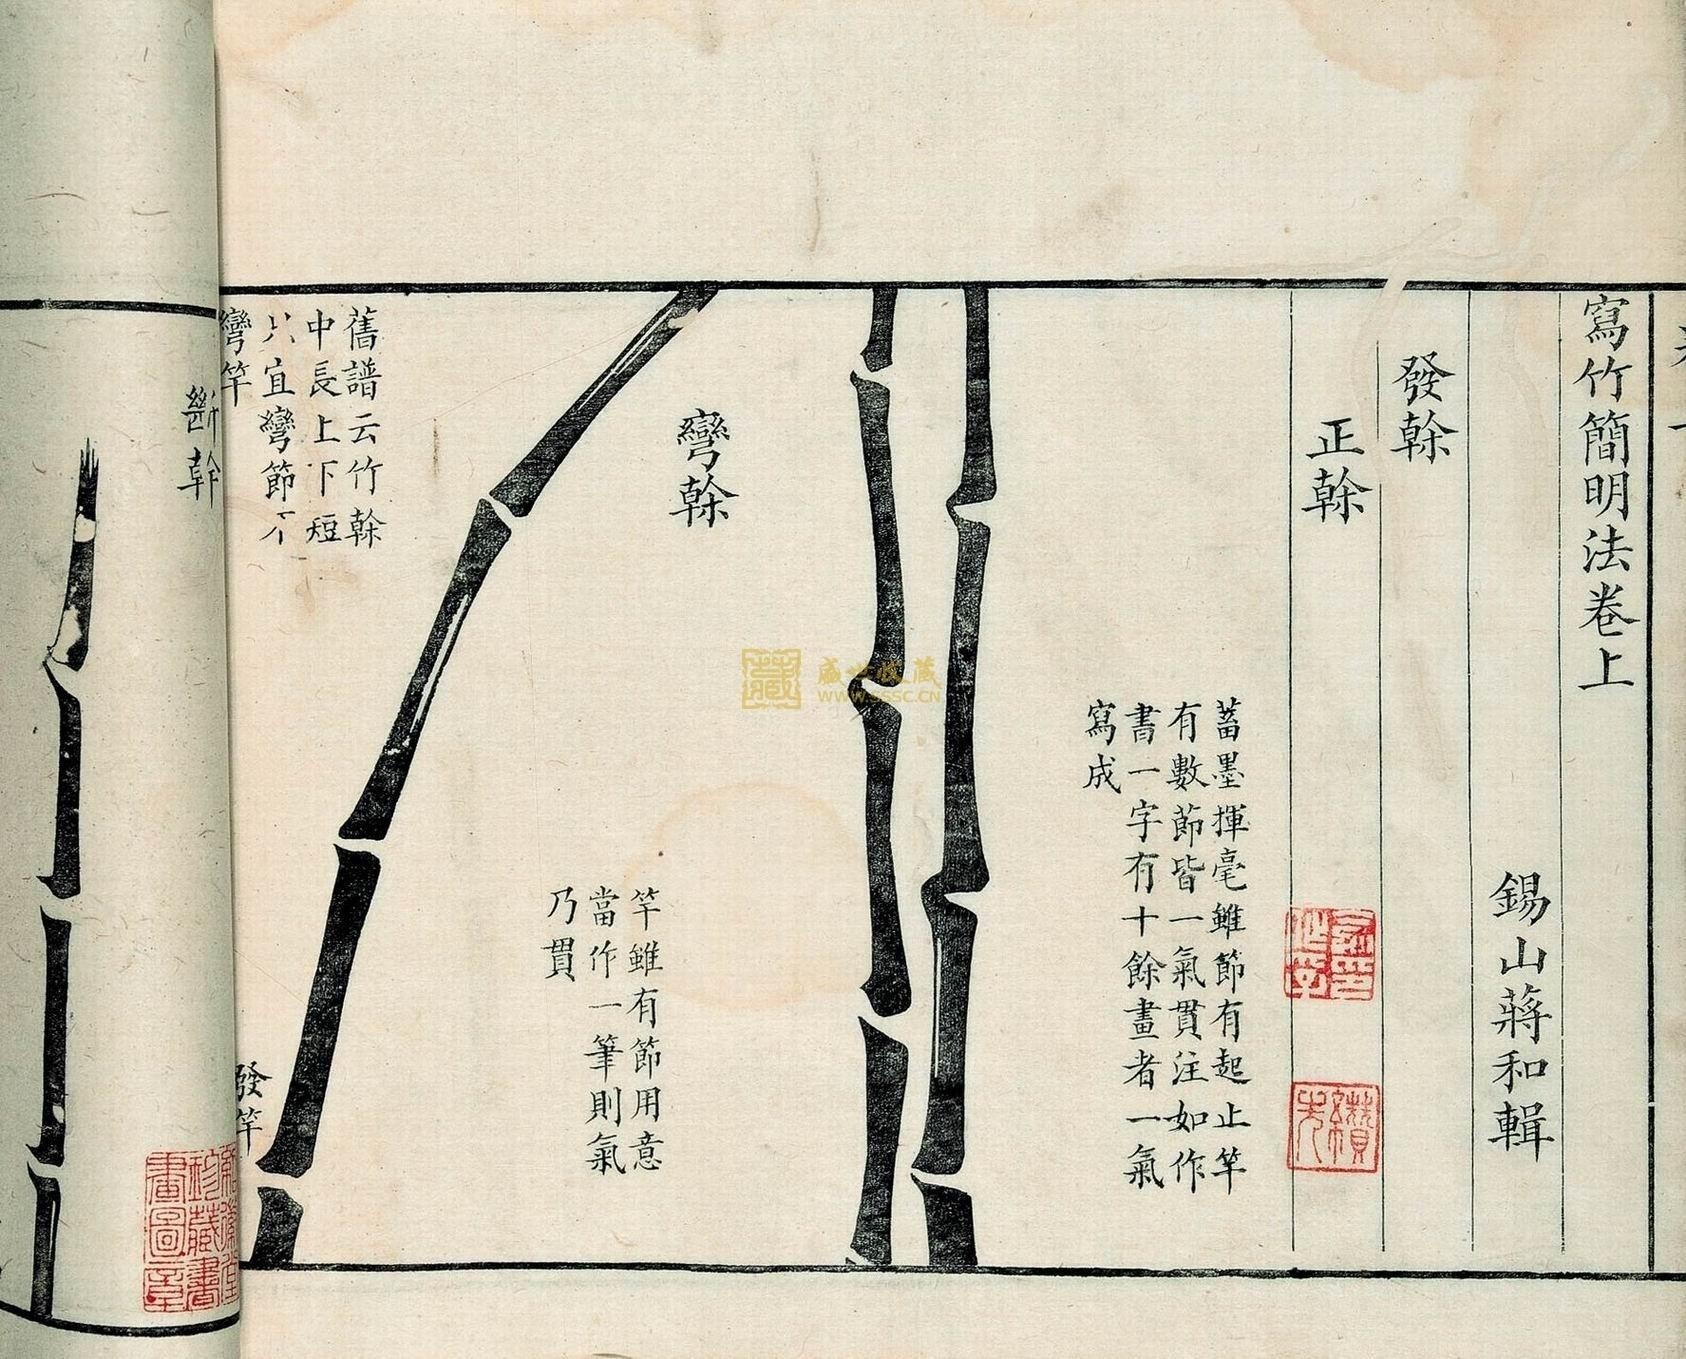 寫竹簡明法卷上
錫山蔣和輯
發榦
正榦
蓄墨揮毫雖節有起止竿
有數節皆一氣貫注如作
書一字有十餘畫者一氣
寫成
彎榦
竿雖有節用意
當作一筆則氣
乃貫
舊譜云竹榦
中長上下短
宜彎節不
彎竿
發竿
斷榦
珍藏書
畫圖章
盛世收藏
WWW.SSSC.CN